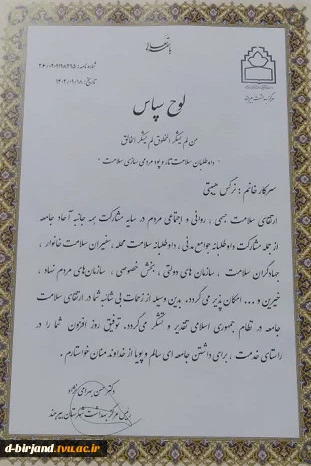 باسمه تعالی
شماره نامه:
تاریخ: ۱۴۰۲/۰۹/۱۸
لوح سپاس
من لم یشکر المخلوق لم یشکر الخالق
" داوطلبان سلامت تار و پود مردمی سازی سلامت "
سرکار خانم : نرگس هیبتی
ارتقای سلامت جسمی ، روانی و اجتماعی مردم در سایه مشارکت همه جانبه آحاد جامعه
از جمله مشارکت داوطلبانه جوامع مدنی ، داوطلبانه سلامت محله ، سفیران سلامت خانوار ،
جهادگران سلامت ، سازمان های دولتی ، بخش خصوصی ، سازمان‌های مردم نهاد ،
خیرین و ... امکان پذیر می گردد. بدین وسیله از زحمات بی شائبه شما در ارتقای سلامت
جامعه در نظام جمهوری اسلامی تقدیر و تشکر می‌گردد. توفیق روز افزون شما را در
راستای خدمت ، برای داشتن جامعه ای سالم و پویا از خداوند منان خواستارم .
رئیس مرکز بهداشت شهرستان بیرجند
d-birjand.tvu.ac.ir